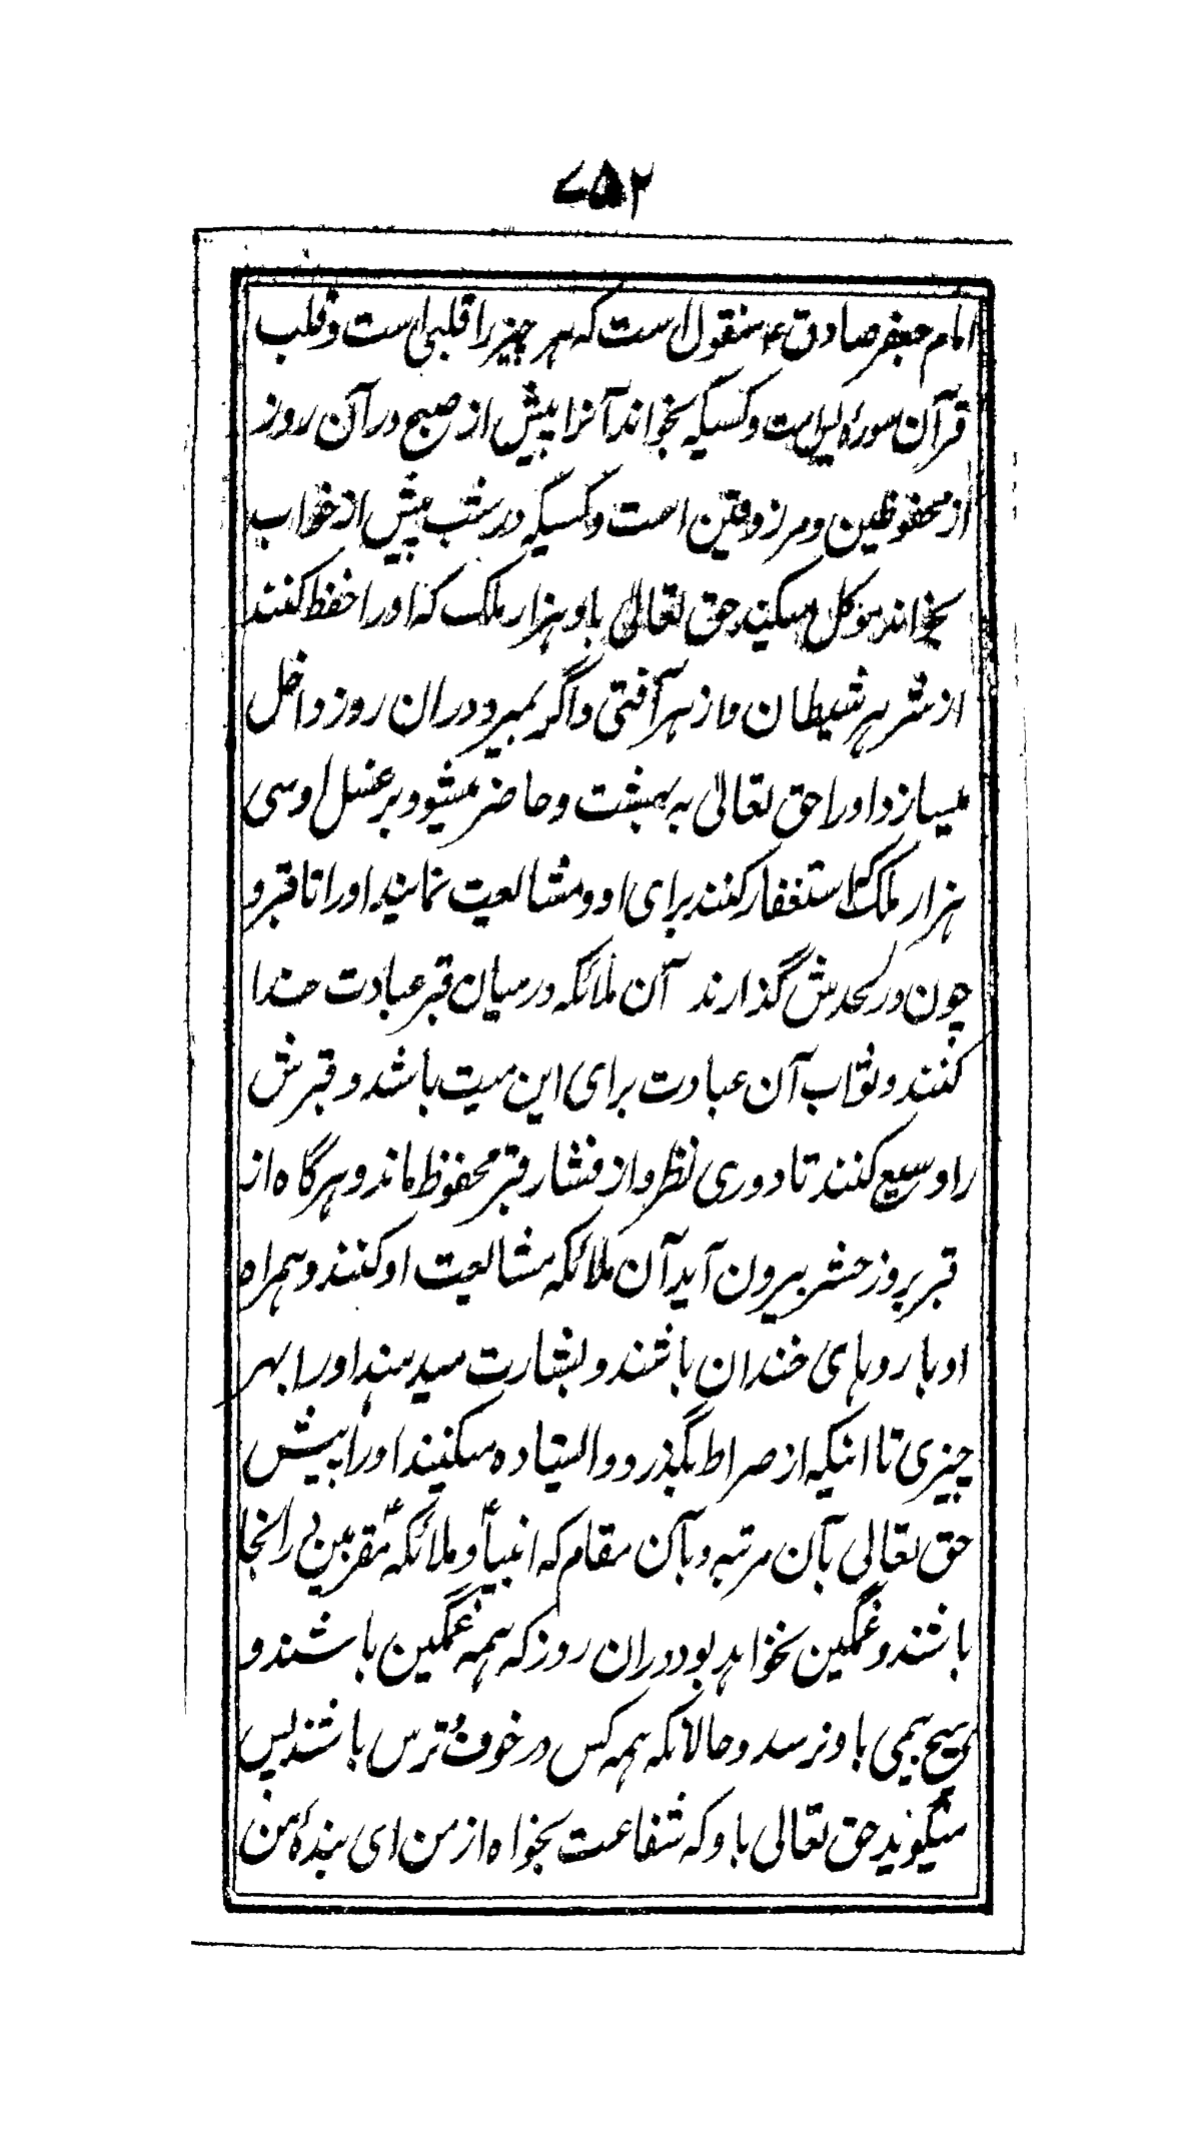 ۷۵۲
امام جعفر صادق ؑ منقول است که هر چیز را قلبی است و قلب
قرآن سورهٔ یس است و کسیکه بخواند آنرا پیش از صبح در آن روز
از محفوظین و مرزوقین است و کسیکه در شب پیش از خواب
بخواند موکل میکند حق تعالیٰ باو هزار ملک که او را حفظ کنند
از شر هر شیطان و از هر آفتی و اگر بمیرد دران روز داخل
میسازد او را حق تعالیٰ به بهشت و حاضر میشود بر غسل او سی
هزار ملک که استغفار کنند برای او و مشایعت نمایند او را تا قبر و
چون در لحدش گذارند آن ملائکه در میان قبر عبادت خدا
کنند و ثواب آن عبادت برای این میت باشد و قبرش
را وسیع کنند تا دوری نظر و از فشار قبر محفوظ ماند و هرگاه از
قبر بروز حشر بیرون آید آن ملائکه مشایعت او کنند و همراه
او با روہای خندان باشند و بشارت میدهند او را بهر
چیزی تا اینکه از صراط بگذرد و ایستاده میکنند او را پیش
حق تعالی بآن مرتبه و بآن مقام که انبیاؑ و ملائکه مقربین در انجا
باشند و غمگین نخواهد بود دران روز که همه غمگین باشند و
هیچ بیمی باو نرسد و حالانکه همه کس در خوف و ترس باشند پس
میگوید حق تعالی باو که شفاعت بخواه از من ای بندهٔ من